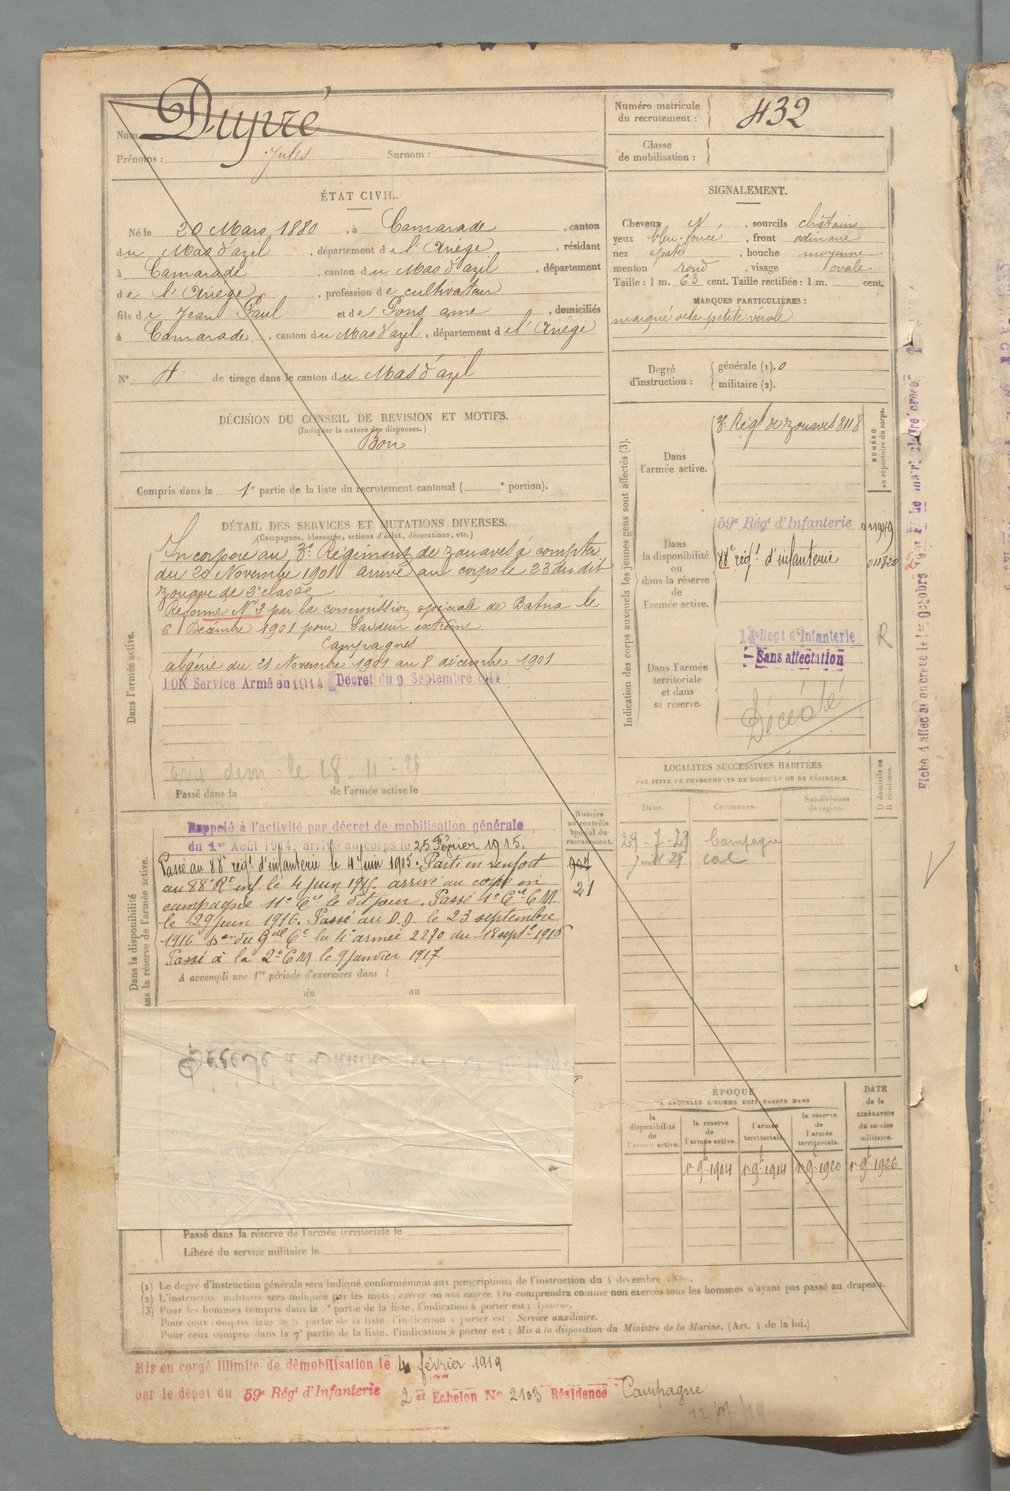 Nom Dupré
Prénoms : Jules Surnom :
Numéro matricule du recrutement : 432
Classe de mobilisation :
ÉTAT CIVIL.
Né le 20 Mars 1880, à Camarade, canton
du Mas d'azil, département de l'Ariège, résidant
à Camarade, canton du Mas d'azil, département
de l'Ariège, profession de cultivateur
fils de Jean Paul et de Pons anne, domiciliés
à Camarade, canton du Mas d'azil, département de l'Ariège
N° 4 de tirage dans le canton du Mas d'azil
DÉCISION DU CONSEIL DE REVISION ET MOTIFS.
(Indiquer la nature des dispenses.)
Bon
Compris dans la 1e partie de la liste du recrutement cantonal ( e portion).
SIGNALEMENT.
Cheveux N, sourcils châtains
yeux bleu foncé, front ordinaire
nez épaté, bouche moyenne
menton rond, visage ovale
Taille : 1 m. 63 cent. Taille rectifiée : 1 m. cent.
MARQUES PARTICULIÈRES :
marqué de la petite vérole
Degré d'instruction : générale (1). 0
militaire (2).
DÉTAIL DES SERVICES ET MUTATIONS DIVERSES.
(Campagnes, blessures, actions d'éclat, décorations, etc.)
Dans l'armée active.
Incorporé au 3e Régiment de zouaves à compter
du 20 Novembre 1901 arrivé au corps le 23 du dit
zouave de 2e classe
Réformé N° 2 par la commission spéciale de Batna le
6 Décembre 1901 pour laideur extrême
Campagnes
algérie du 21 Novembre 1901 au 8 décembre 1901
BON Service Armé en 1914 Décret du 9 Septembre 1914
le 18-11-28
Passé dans la de l'armée active le
Indication des corps auxquels les jeunes gens sont affectés (3).
NUMÉRO au répertoire du corps.
Dans l'armée active.
3e Régt de zouaves 8118
Dans la disponibilité ou dans la réserve de l'armée active.
59e Régt d'Infanterie 011949
88e régt d'infanterie 011820
Dans l'armée territoriale et dans sa réserve.
14e Régt d'Infanterie
Sans affectation
Décédé
R
LOCALITÉS SUCCESSIVES HABITÉES
PAR SUITE DE CHANGEMENTS DE DOMICILE OU DE RÉSIDENCE.
Dates. Communes. Subdivisions de région. D domicile ou R résidence.
29-7-29 Campagne
Dans la disponibilité
ou dans la réserve de l'armée active.
Numéro au contrôle spécial du recrutement.
907
21
Rappelé à l'activité par décret de mobilisation générale
du 1er Août 1914, arrivé au corps le 25 Février 1915.
Passé au 88e régt d'infanterie le 4 juin 1915. Parti en renfort
au 88e Rt inf le 4 juin 1915. arrivé au corps en
campagne 11e Cie le dit jour. Passé 1e Cie C M
le 29 juin 1916. Passé au D.D. le 23 septembre
1916 Don du Gral Ct la 4e armée 2270 du 18 sept. 1916
Passé à la 2e C M le 9 janvier 1917
A accompli une 1re période d'exercices dans l
du au
Passé dans la réserve de l'armée territoriale le
Libéré du service militaire le
ÉPOQUE
A LAQUELLE L'HOMME DOIT PASSER DANS
la disponibilité de l'armée active. la réserve de l'armée active. l'armée territoriale. la réserve de l'armée territoriale.
DATE de la LIBÉRATION du service militaire.
1r 9bre 1904 1r 9bre 1914 1r 9bre 1920 1r 9bre 1926
(1) Le degré d'instruction générale sera indiqué conformément aux prescriptions de l'instruction du 4 décembre
(2) L'instruction militaire sera indiquée par les mots : exercé ou non exercé. On comprendra comme non exercés tous les hommes n'ayant pas passé au drapeau.
(3) Pour les hommes compris dans la partie de la liste, l'indication à porter est :
Pour ceux compris dans la 5e partie de la liste, l'indication à porter est : Service auxiliaire.
Pour ceux compris dans la 7e partie de la liste, l'indication à porter est : Mis à la disposition du Ministre de la Marine. (Art. 4 de la loi.)
Mis en congé illimité de démobilisation le 4 février 1919
par le dépôt du 59e Régt d'Infanterie 2 et Echelon N° 2103 Résidence Campagne